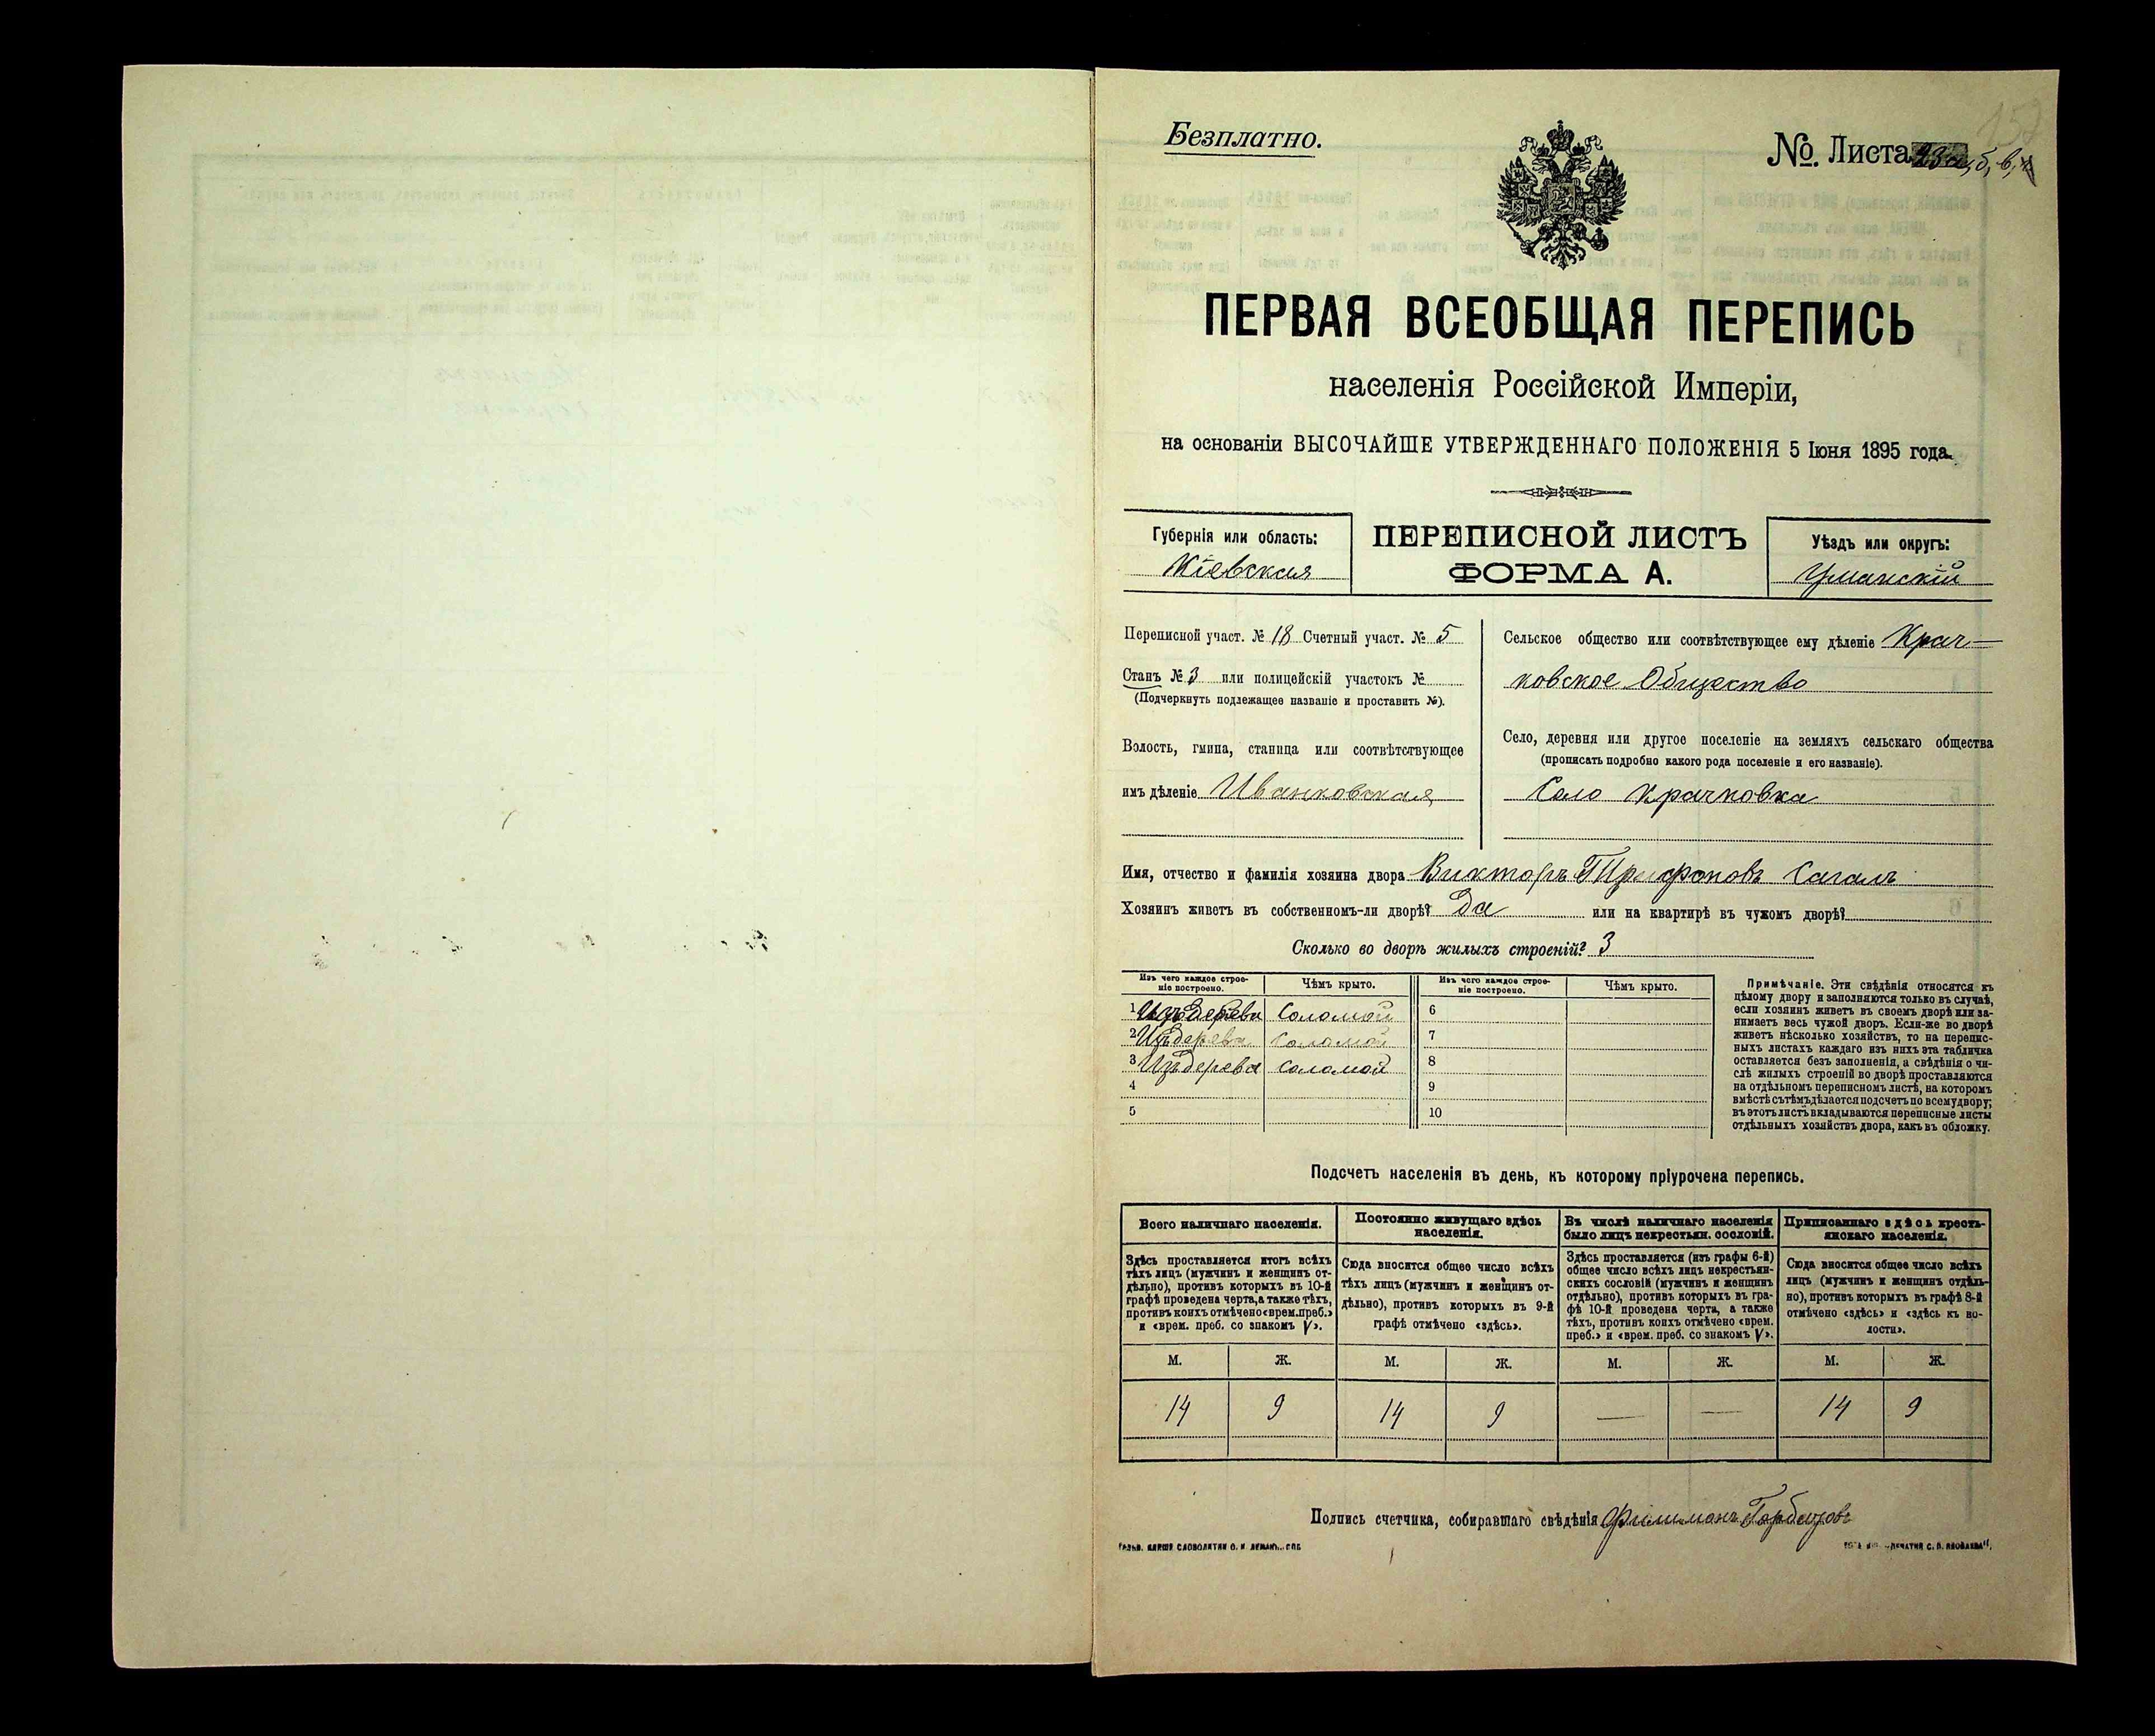 Безплатно.
№ Листа 23 а, б, в, г
ПЕРВАЯ ВСЕОБЩАЯ ПЕРЕПИСЬ
населенія Россійской Имперіи,
на основаніи ВЫСОЧАЙШЕ УТВЕРЖДЕННАГО ПОЛОЖЕНІЯ 5 Іюня 1895 года.
Губернія или область:
Кіевская
ПЕРЕПИСНОЙ ЛИСТЪ
ФОРМА А.
Уѣздъ или округъ:
Уманскій
Переписной участ. № 18 Счетный участ. № 5
Станъ № 3 или полицейскій участокъ №
(Подчеркнуть подлежащее названіе и проставить №).
Волость, гмина, станица или соотвѣтствующее
имъ дѣленіе Иванковская
Сельское общество или соотвѣтствующее ему дѣленіе Крач-
ковское Общество
Село, деревня или другое поселеніе на земляхъ сельскаго общества
(прописать подробно какого рода поселеніе и его названіе).
Село Крачковка
Имя, отчество и фамилія хозяина двора Викторъ Трифоновъ Сагалъ
Хозяинъ живетъ въ собственномъ-ли дворѣ? Да или на квартирѣ въ чужомъ дворѣ?
Сколько во дворѣ жилыхъ строеній? 3
Изъ чего каждое строе-
ніе построено.
Чѣмъ крыто.
Изъ чего каждое строе-
ніе построено.
Чѣмъ крыто.
1 Изъ дерева Соломой 6
2 Изъ дерева Соломой 7
3 Изъ дерева Соломой 8
4 9
5 10
Примѣчаніе. Эти свѣдѣнія относятся къ
цѣлому двору и заполняются только въ случаѣ,
если хозяинъ живетъ въ своемъ дворѣ или за-
нимаетъ весь чужой дворъ. Если-же во дворѣ
живетъ нѣсколько хозяйствъ, то на перепис-
ныхъ листахъ каждаго изъ нихъ эта табличка
оставляется безъ заполненія, а свѣдѣнія о чи-
слѣ жилыхъ строеній во дворѣ проставляются
на отдѣльномъ переписномъ листѣ, на которомъ
вмѣстѣ съ тѣмъ дѣлается подсчетъ по всему двору;
въ этотъ листъ вкладываются переписные листы
отдѣльныхъ хозяйствъ двора, какъ въ обложку.
Подсчетъ населенія въ день, къ которому пріурочена перепись.
Всего наличнаго населенія.
Здѣсь проставляется итогъ всѣхъ
тѣхъ лицъ (мужчинъ и женщинъ от-
дѣльно), противъ которыхъ въ 10-й
графѣ проведена черта, а также тѣхъ,
противъ коихъ отмѣчено «врем. преб.»
и «врем. преб. со знакомъ V».
Постоянно живущаго здѣсь
населенія.
Сюда вносится общее число всѣхъ
тѣхъ лицъ (мужчинъ и женщинъ от-
дѣльно), противъ которыхъ въ 9-й
графѣ отмѣчено «здѣсь».
Въ числѣ наличнаго населенія
было лицъ некрестьян. сословій.
Здѣсь проставляется (изъ графы 6-й)
общее число всѣхъ лицъ некрестьян-
скихъ сословій (мужчинъ и женщинъ
отдѣльно), противъ которыхъ въ гра-
фѣ 10-й проведена черта, а также
тѣхъ, противъ коихъ отмѣчено «врем.
преб.» и «врем. преб. со знакомъ V».
Приписаннаго здѣсь кресть-
янскаго населенія.
Сюда вносится общее число всѣхъ
лицъ (мужчинъ и женщинъ отдѣль-
но), противъ которыхъ въ графѣ 8-й
отмѣчено «здѣсь» и «здѣсь къ во-
лости».
М. Ж. М. Ж. М. Ж. М. Ж.
14 9 14 9 — — 14 9
Подпись счетчика, собиравшаго свѣдѣнія Филимонъ